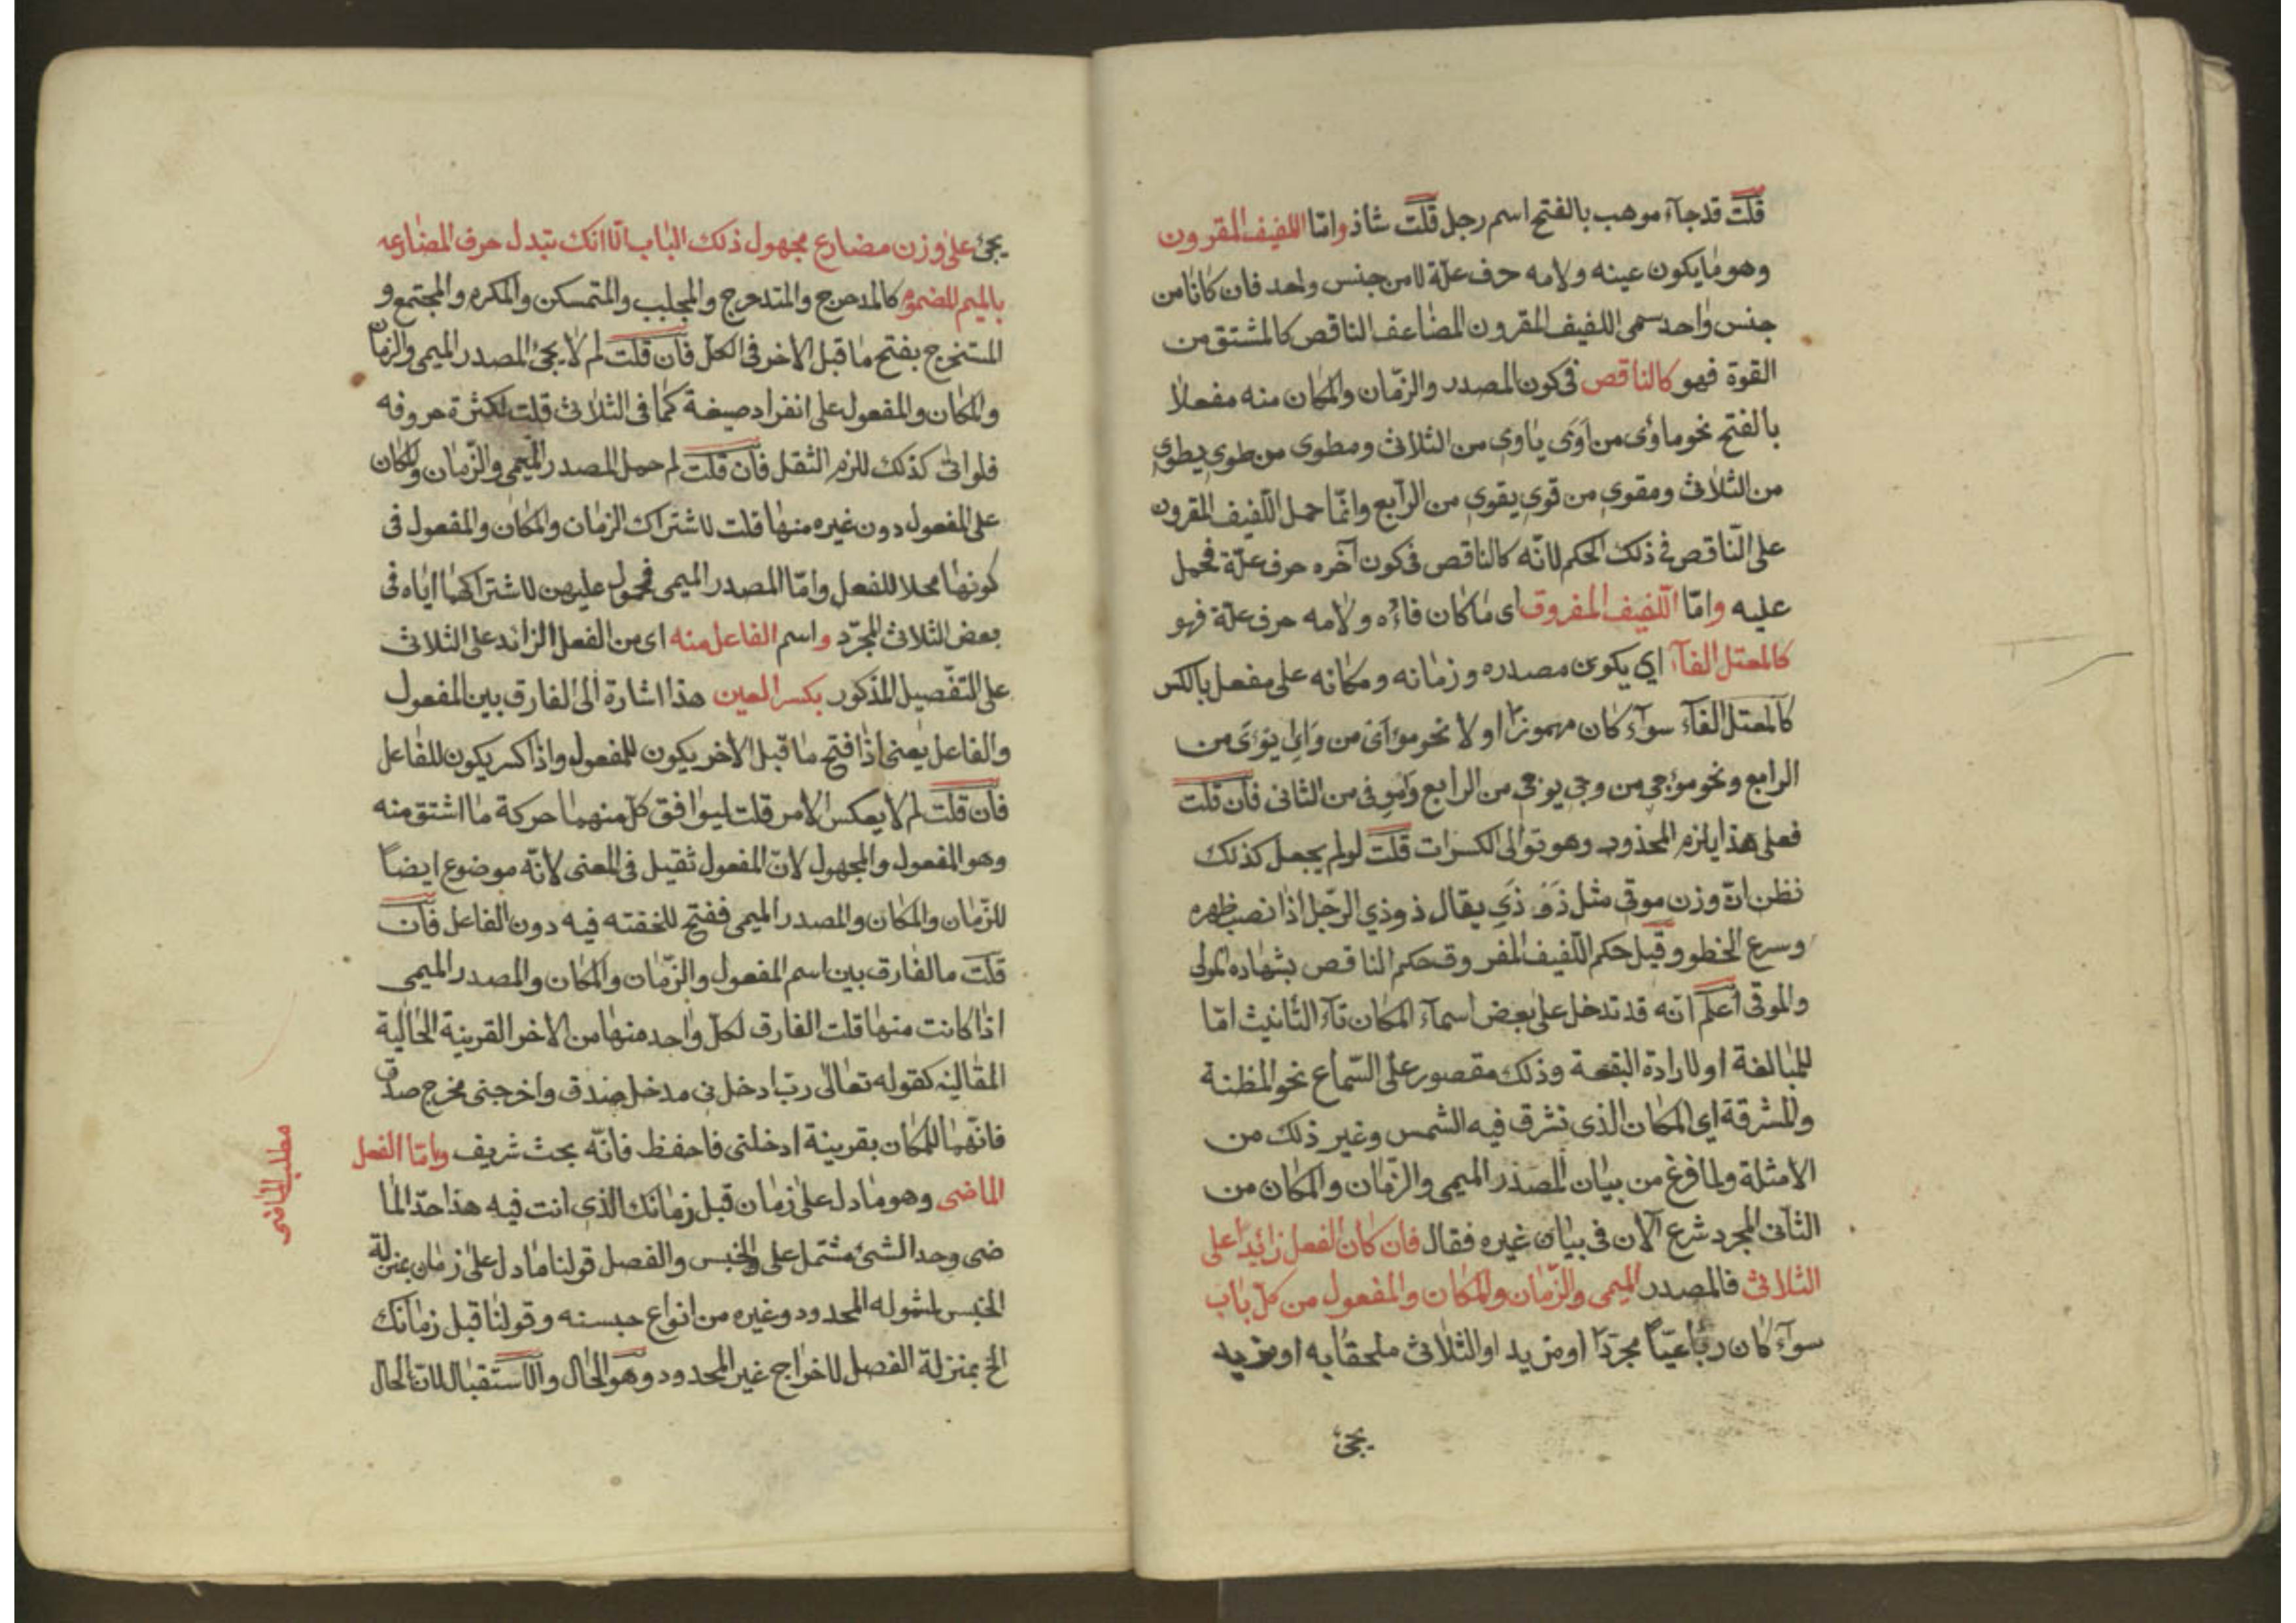 قلت قد جآء موهب بالفتح اسم رجل قلت شاذ وامّا اللفيف المقرون
وهو ما يكون عينه ولامه حرف علّة لا من جنس واحد فان كانا من
جنس واحد سمى اللفيف المقرون المضاعف الناقص كالمشتق من
القوة فهو كالناقص فى كون المصدر والزّمان والمكان منه مفعلا
بالفتح نحو ماوًى من اَوَى ياوى من الثلاث ومطوى من طوى يطوى
من الثلاث ومقوى من قوى يقوى من الرّابع وانّما حمل اللّفيف المقرون
على النّاقص فى ذلك الحكم لانّه كالناقص فى كون آخره حرف علّة فحمل
عليه وامّا اللّفيف المفروق اى ما كان فاؤه ولامه حرف علّة فهو
كالمعتل الفآء اى يكون مصدره وزمانه ومكانه على مفعل بالكس
كالمعتل الفآء سوآء كان مهموزا او لا نحو موأى من وَاىَ يؤىَ من
الرابع ونحو موجى من وجى يوجى من الرابع وموفى من الثانى فآن قلت
فعلى هذا يلزم المحذور وهو توالى الكسرات قلت لو لم يجعل كذلك
نظن انّ وزن موقى مثل يقال ذوذى الرّجل اذا نصب ظهره
وسرع الخطو وقيل حكم اللّفيف المفروق حكم الناقص بشهاده المولى
والموقى اعلم انّه قد تدخل على بعض اسمآء المكان تآء التّانيث امّا
للمبالغة او لارادة البقعة وذلك مقصور على السّماع نحو المظنة
والمشرقة اى المكان الذى تشرق فيه الشمس وغير ذلك من
الامثلة ولما فرغ من بيان المصدر الميمى والزّمان والمكان من
الثآنى المجرد شرع الآن فى بيان غيره فقال فان كان الفعل زائدا على
الثلاثى فالمصدر الميمى والزّمان والمكان والمفعول من كلّ باب
سوآء كان رباعيّا مجرّدا او مزيد او الثلاثى ملحقا به او مزيد
يجئ
يجئ على وزن مضارع مجهول ذلك الباب الّا انك تبدل حرف المضارعه
بالميم المضموم كالمدحرج والمتدحرج والمجلبب والمتمسكن والمكرم والمجتمع و
المستخرج بفتح ما قبل الاخر فى الكلّ فآن قلت لم لا يجئ المصدر الميمى والزمان
والمكان والمفعول على انفراد صيغة كما فى الثلاثى قلت لكثرة حروفه
فلو اتى كذلك للزم الثقل فآن قلت لم حمل المصدر الميمى والزّمان والمكان
على المفعول دون غيره منها قلت لاشتراك الزمان والمكان والمفعول فى
كونها محلا للفعل وامّا المصدر الميمى فمحمول عليهن لاشتراكهما ايّاه فى
بعض الثلاثى المجرّد واسم الفاعل منه اى من الفعل الزائد على الثلاثى
على التفصيل المذكور بكسر العين هذا اشارة الى الفارق بين المفعول
والفاعل يعنى اذا فتح ما قبل الاخر يكون للمفعول واذا كسر يكون للفاعل
فآن قلت لم لا يعكس الامر قلت ليوافق كلّ منهما حركة ما اشتق منه
وهو المفعول والمجهول لانّ المفعول ثقيل فى المعنى لانّه موضوع ايضاً
للزّمان والمكان والمصدر الميمى ففتح للخفته فيه دون الفاعل فآن
قلت ما الفارق بين اسم المفعول والزّمان والمكان والمصدر الميمى
اذا كانت منها قلت الفارق لكلّ واحد منها من الاخر القرينة الحالية
المقالية كقوله تعالى رب ادخلنى مدخل صدق واخرجنى مخرج صدق
فانّهما للمكان بقرينة ادخلنى فاحفظ فانّه بحث شريف وامّا الفعل
الماضى وهو ما دل على زمان قبل زمانك الذى انت فيه هذا حدّ الما
ضى وحد الشئ مشتمل على الجنس والفصل قولنا ما دل على زمان بمنزلة
الجنس لشموله المحدود وغيره من انواع جنسه وقولنا قبل زمانك
الخ بمنزلة الفصل لاخراج غير المحدود وهو الحال والآستقبال لانّ الحال
مطلب الماضى